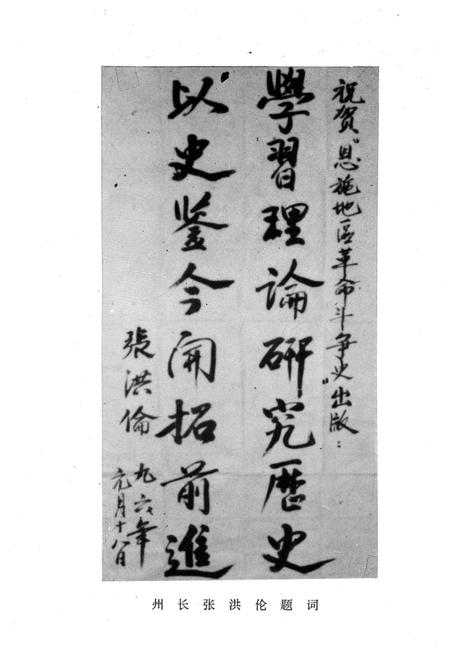 祝贺“恩施地區革命斗争史”出版：
學習理論研究歷史
以史鉴今開拓前進
張洪倫
九六年
元月十八日
州长张洪伦题词